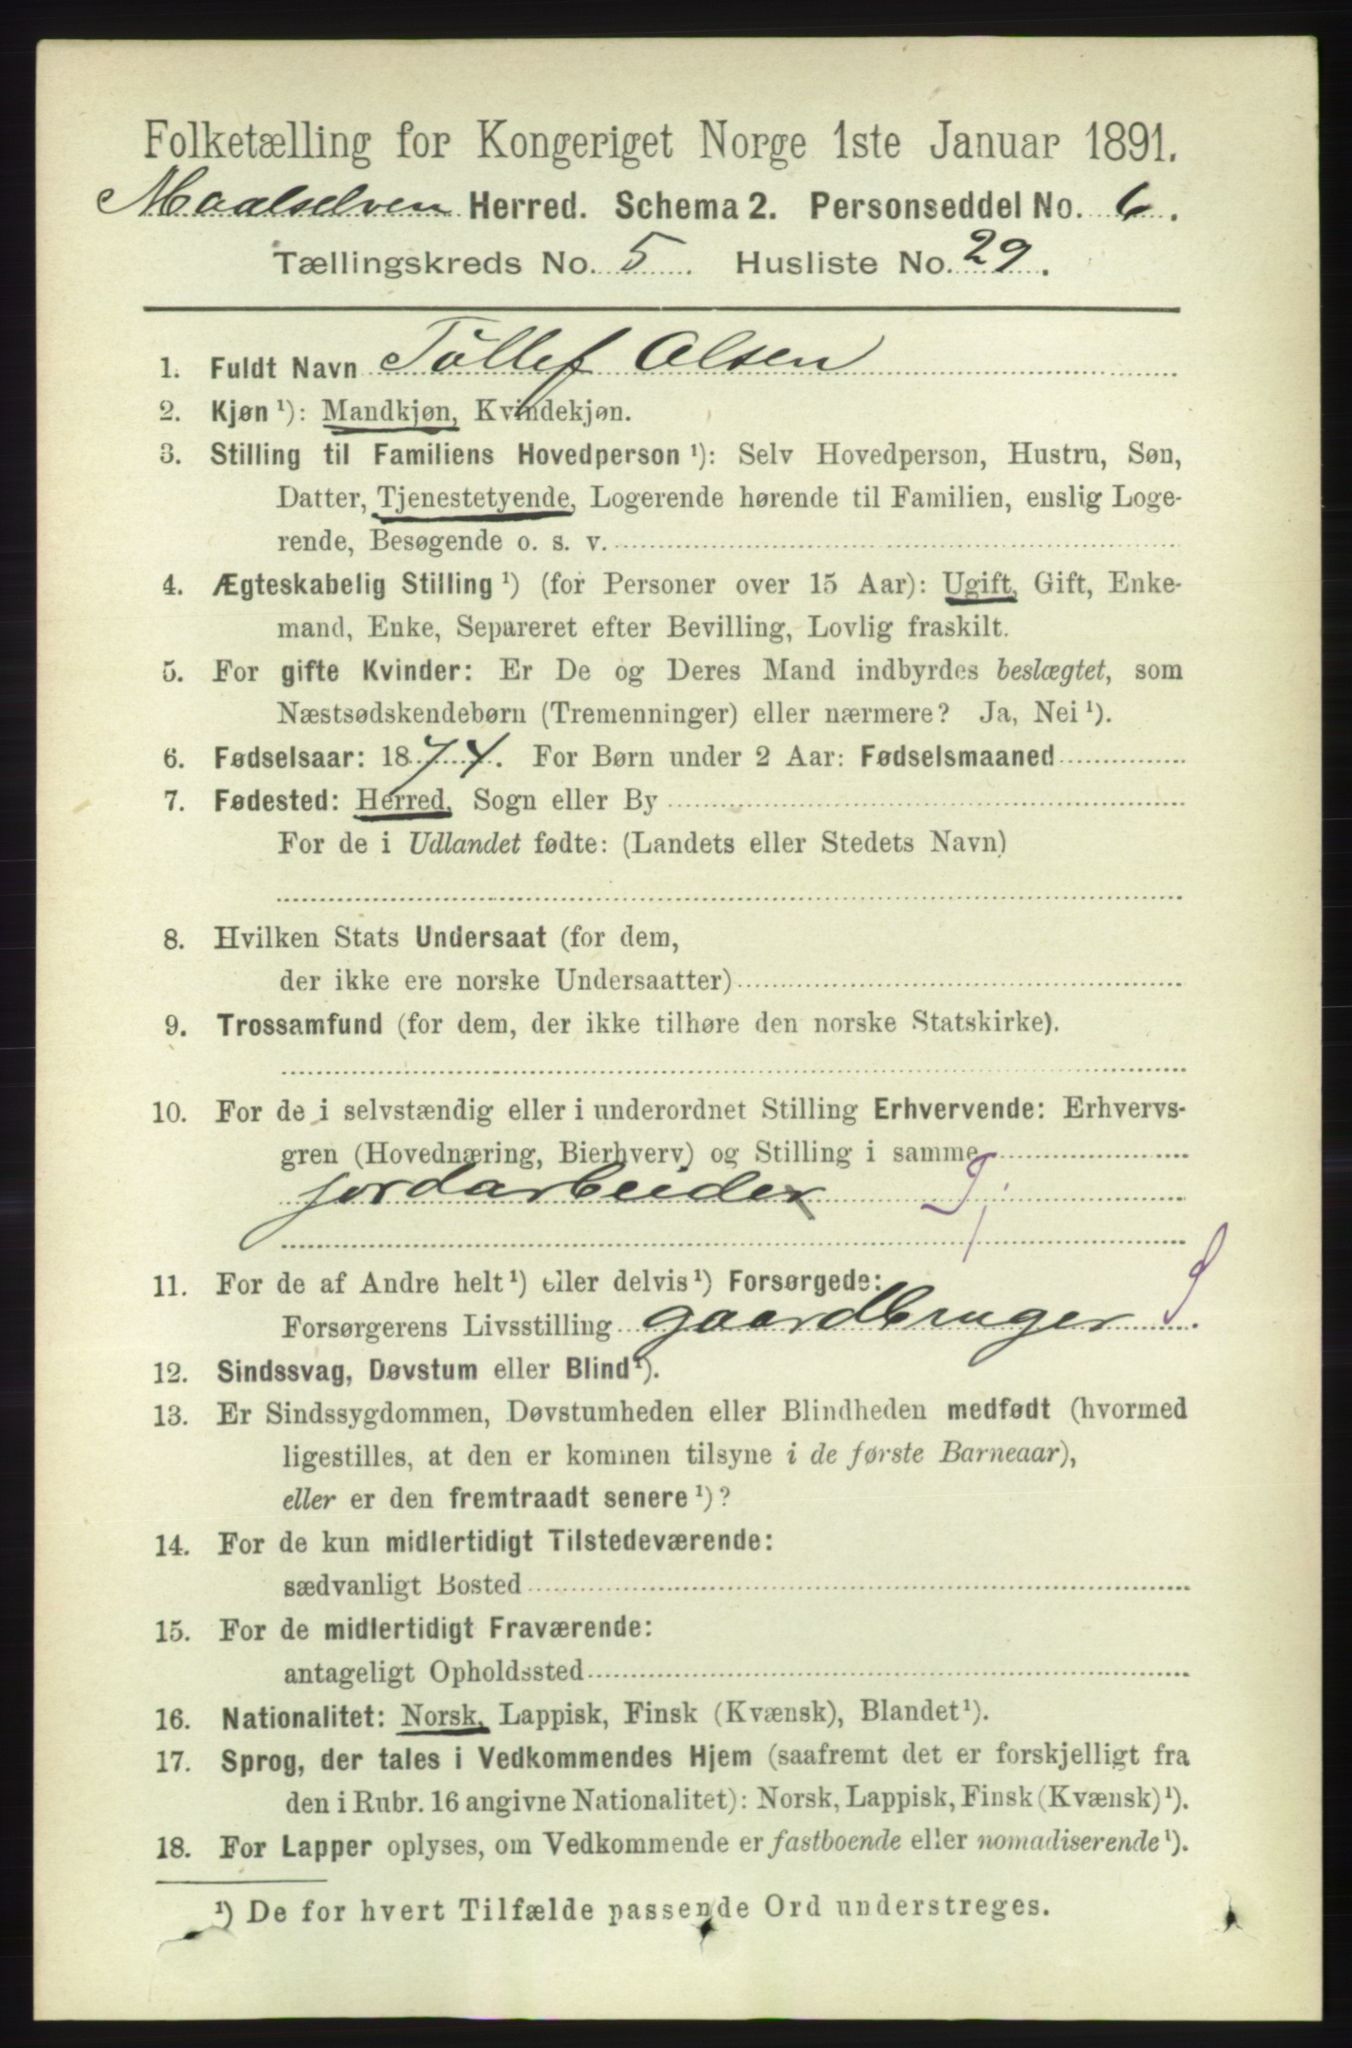 Folketælling for Kongeriget Norge 1ste Januar 1891.
Maalselven Herred. Schema 2. Personseddel No. 6.
Tællingskreds No. 5. Husliste No. 29.
1. Fuldt Navn Töllef Olsen
2. Kjøn¹): Mandkjøn, Kvindekjøn.
3. Stilling til Familiens Hovedperson¹): Selv Hovedperson, Hustru, Søn,
Datter, Tjenestetyende, Logerende hørende til Familien, enslig Loge-
rende, Besøgende o. s. v.
4. Ægteskabelig Stilling¹) (for Personer over 15 Aar): Ugift, Gift, Enke-
mand, Enke, Separeret efter Bevilling, Lovlig fraskilt.
5. For gifte Kvinder: Er De og Deres Mand indbyrdes beslægtet, som
Næstsødskendebørn (Tremenninger) eller nærmere? Ja, Nei¹).
6. Fødselsaar: 1874. For Børn under 2 Aar: Fødselsmaaned
7. Fødested: Herred, Sogn eller By
For de i Udlandet fødte: (Landets eller Stedets Navn)
8. Hvilken Stats Undersaat (for dem,
der ikke ere norske Undersaatter)
9. Trossamfund (for dem, der ikke tilhøre den norske Statskirke).
10. For de i selvstændig eller i underordnet Stilling Erhvervende: Erhvervs-
gren (Hovednæring, Bierhverv) og Stilling i samme
jordarbeider
11. For de af Andre helt¹) eller delvis¹) Forsørgede:
Forsørgerens Livsstilling gaardbruger
12. Sindssvag, Døvstum eller Blind¹).
13. Er Sindssygdommen, Døvstumheden eller Blindheden medfødt (hvormed
ligestilles, at den er kommen tilsyne i de første Barneaar),
eller er den fremtraadt senere¹)?
14. For de kun midlertidigt Tilstedeværende:
sædvanligt Bosted
15. For de midlertidigt Fraværende:
antageligt Opholdssted
16. Nationalitet: Norsk, Lappisk, Finsk (Kvænsk), Blandet¹).
17. Sprog, der tales i Vedkommendes Hjem (saafremt det er forskjelligt fra
den i Rubr. 16 angivne Nationalitet): Norsk, Lappisk, Finsk (Kvænsk)¹).
18. For Lapper oplyses, om Vedkommende er fastboende eller nomadiserende¹).
¹) De for hvert Tilfælde passende Ord understreges.